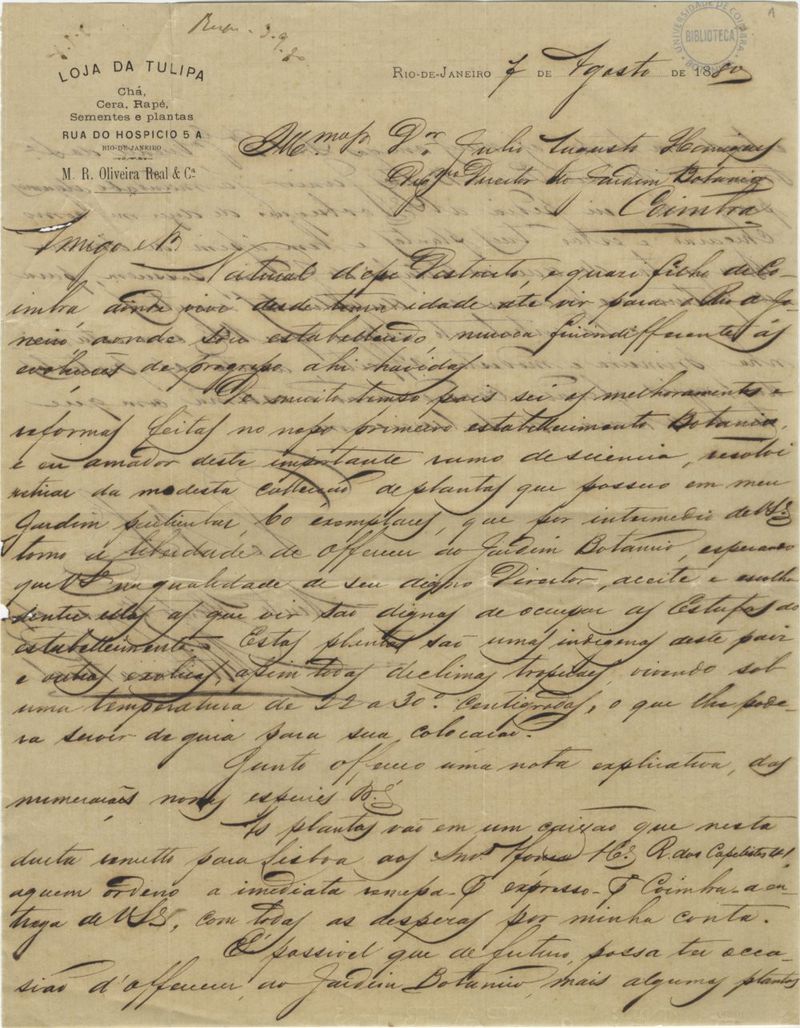 Resp. 3.9.80
1
UNIVERSIDADE DE COIMBRA
BIBLIOTECA
LOJA DA TULIPA
Chá,
Cera, Rapé,
Sementes e plantas
RUA DO HOSPICIO 5 A
RIO-DE-JANEIRO
M. R. Oliveira Real & Ca
RIO-DE-JANEIRO 7 DE Agosto DE 1880
Dor Julio Augusto Henriques
Director do Jardim Botanico
Coimbra
Amigo e Sr
Natural d'esse Destricto, e quasi filho de Co-
imbra donde vivi desde tenra idade até vir para o Rio de Ja-
neiro, aonde sou estabellecido, nunca fui indifferente ás
evoluções de progresso ahi havidas.
De muito tempo pois sei os melhoramentos e
reformas feitas no nosso primeiro estabellecimento Botanico,
e eu amador deste importante ramo de sciencia, resolvi
retirar da modesta collecção de plantas que possuo em meu
Jardim particular, 60 exemplares, que por intermedio de VSa
tomo a liberdade de offerecer ao Jardim Botanico, esperando
que VSa na qualidade de seu digno Director, aceite e escolha
dentre ellas as que vir são dignas de occupar as Estufas do
estabellecimento. Estas plantas são umas indigenas deste paiz
e outras exoticas, assim todas de climas tropicaes, vivendo sob
uma temperatura de 22 a 30o centigrados, o que lhe pode-
ra servir de guia para sua colocação.
Junto offereço uma nota explicativa, das
numerações nomes especies &a
As plantas vão em um caixão que nesta
data remetto para Lisboa aos Snrs R. dos Capelistas
aquem ordeno a imediata remessa p expresso p Coimbra a en-
trega de VSa, com todas as despezas por minha conta.
E possivel que de futuro, possa ter occa-
sião d'offerecer, ao Jardim Botanico, mais algumas plantas